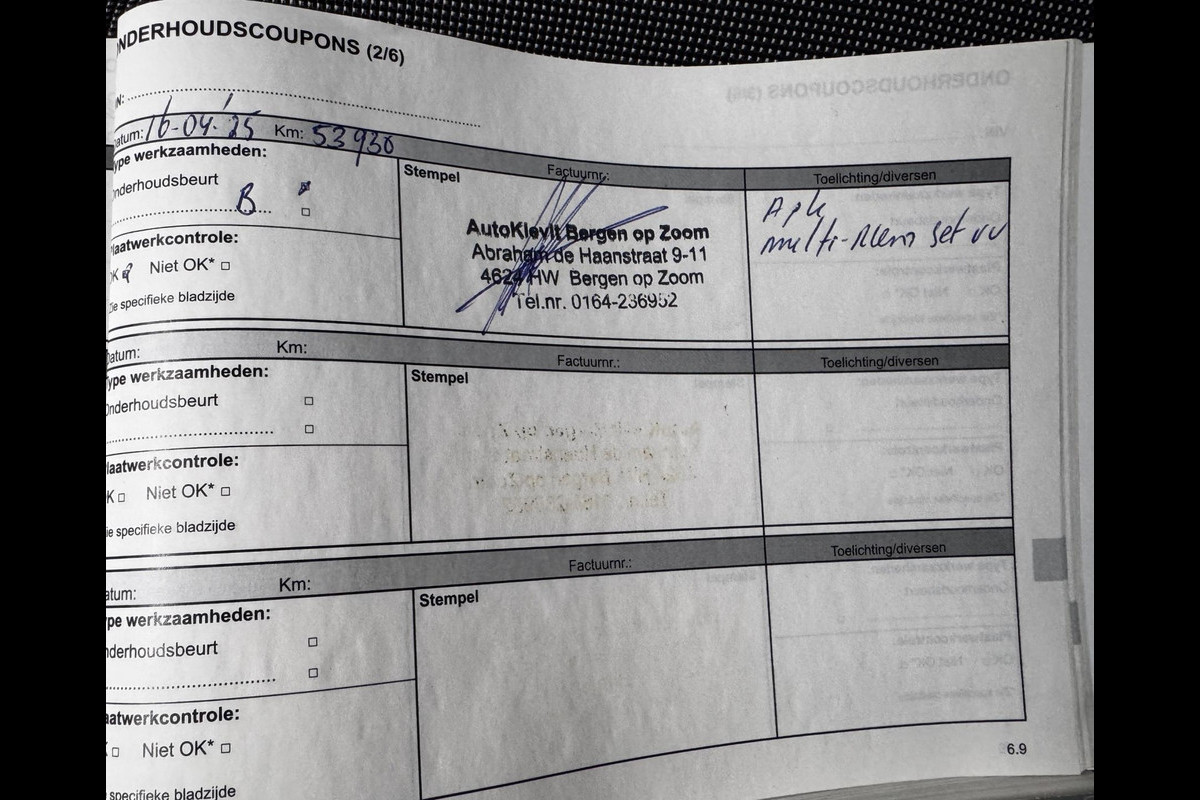 NDERHOUDSCOUPONS (2/6)
N:
atum: 16-04-'25 Km: 53930
ype werkzaamheden:
nderhoudsbeurt
B
laatwerkcontrole:
K Niet OK*
ie specifieke bladzijde
Stempel
Factuurnr.:
AutoKlevit Bergen op Zoom
Abraham de Haanstraat 9-11
4624 HW Bergen op Zoom
Tel.nr. 0164-236952
Toelichting/diversen
Apk
multi-Riem set vv
atum: Km:
ype werkzaamheden:
nderhoudsbeurt
laatwerkcontrole:
K Niet OK*
ie specifieke bladzijde
Stempel
Factuurnr.:
Toelichting/diversen
atum: Km:
pe werkzaamheden:
nderhoudsbeurt
aatwerkcontrole:
Niet OK*
specifieke bladzijde
Stempel
Factuurnr.:
Toelichting/diversen
6.9